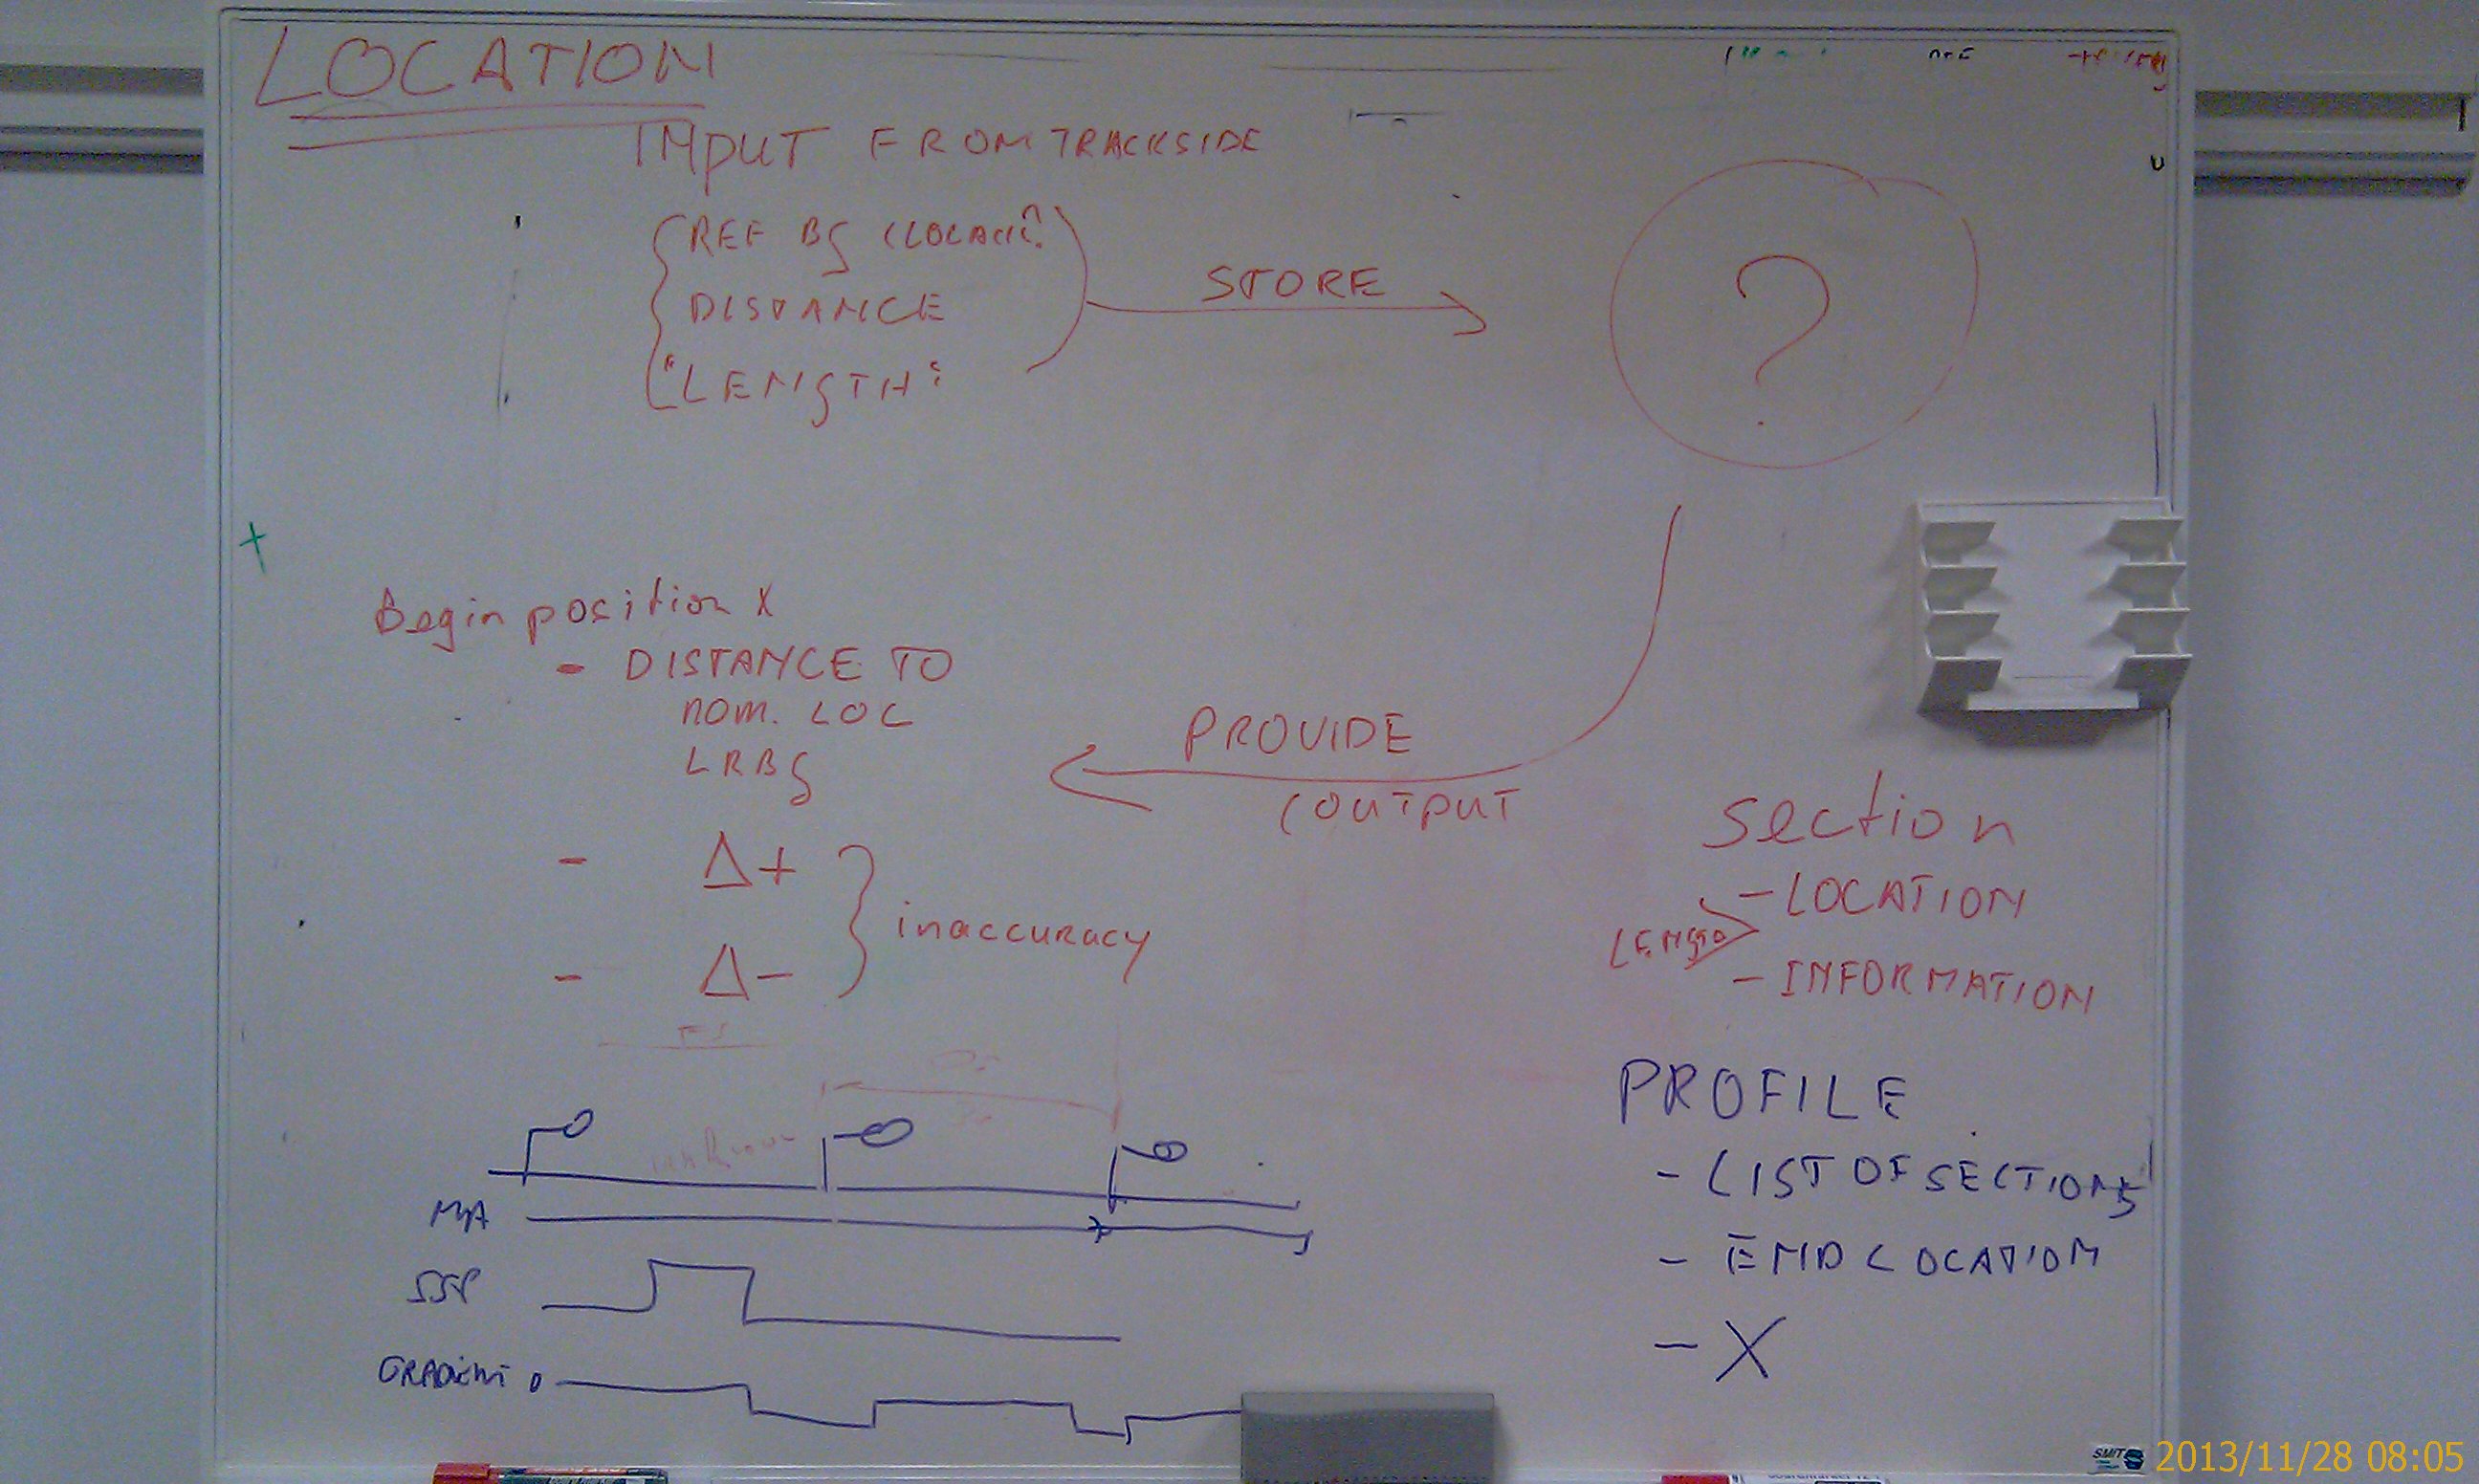 LOCATION
INPUT FROM TRACKSIDE
REF BG
DISTANCE
"LENGTH"
STORE
?
Begin position X
- DISTANCE TO
nom. LOC
LRBG
- Δ+
- Δ-
inaccuracy
PROVIDE
(OUTPUT
section
- LOCATION
LENGTH
- INFORMATION
PROFILE
- LIST OF SECTIONS
- END LOCATION
- X
unknown
MA
SSP
GRADIENT 0
SMIT
2013/11/28 08:05